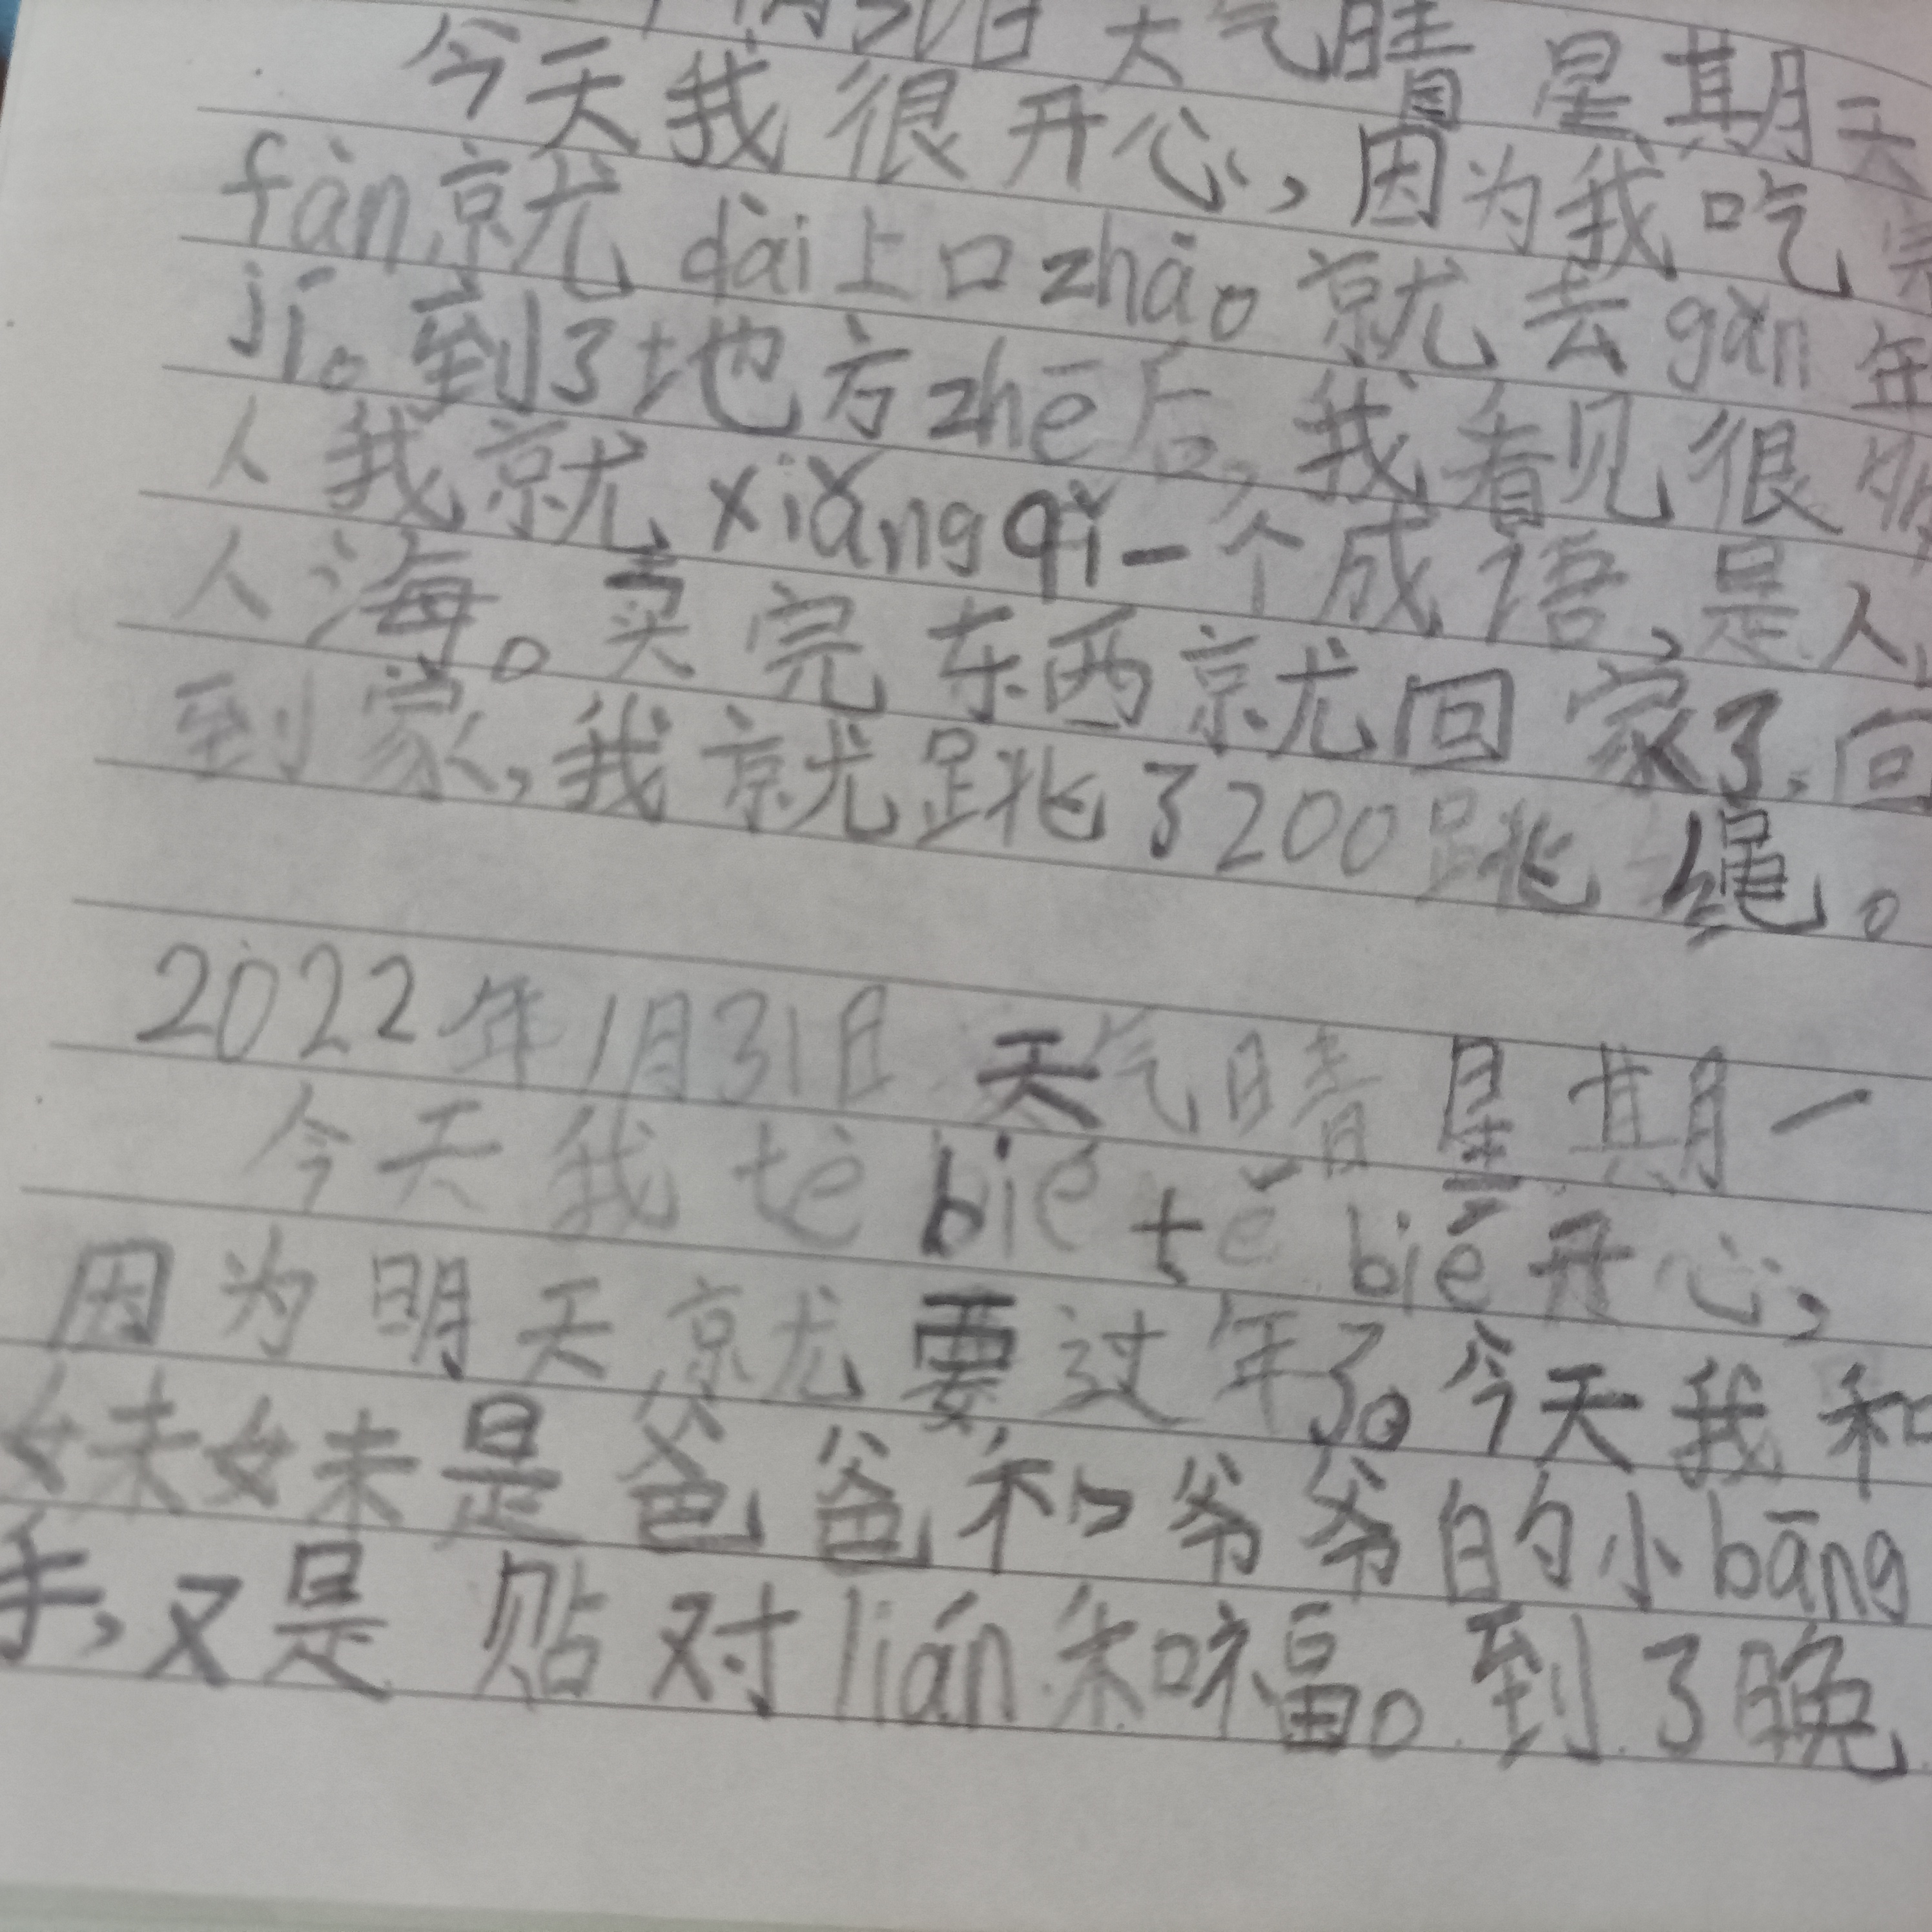 月30日 天气晴 星期天
今天我很开心,因为我吃完
fàn就 dài上口zhào。就去gǎn 年
jí。到了地方zhē后,我看见很
人我就xiǎngqǐ一个成语,是人
人海。买完东西就回家了.回
到家,我就跳了200跳绳。
2022年1月31日 天气晴 星期一
今天我 tè bié tè bié开心,
因为明天就要过年了。今天我和
妹妹是爸爸和爷爷的小bāng
手,又是贴对lián和福。到了晚